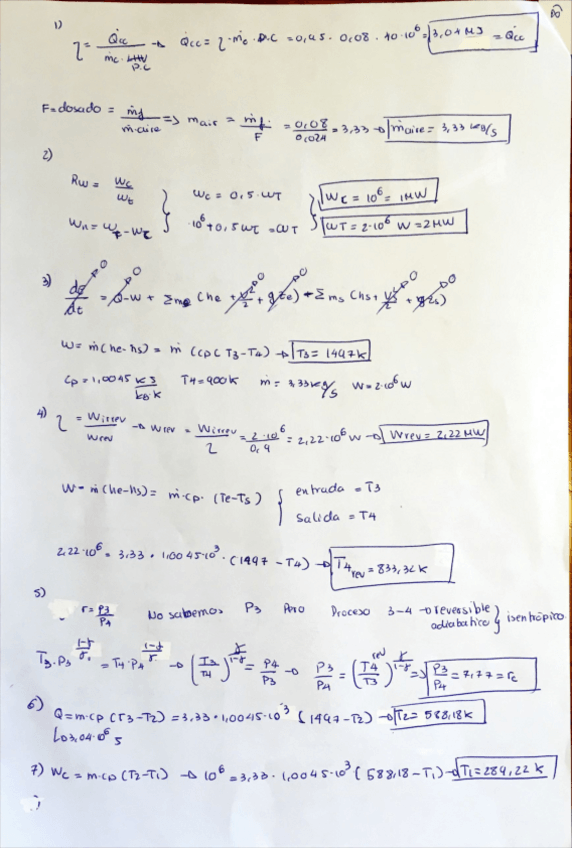 1)
η = Q̇cc / ṁc · P.C → Q̇cc = η · ṁc · P.C = 0,95 · 0,08 · 40 · 10⁶ = 3,04 MJ = Q̇cc
F = dosado = ṁf / ṁaire => mair = ṁf / F = 0,08 / 0,024 = 3,33 → ṁaire = 3,33 kg/s
2)
Rw = wc / wt } wc = 0,5 · wT } wc = 10⁶ = 1MW
Wn = wT - wc } 10⁶ + 0,5 wT = wT } wT = 2·10⁶ W = 2MW
3) dE/dt = Q - W + Σme (he + v²/2 + gze) - Σ ms (hs + v²/2 + gzs)
W = ṁ (he - hs) = ṁ (cp (T3 - T4) → T3 = 1497 K
Cp = 1,0045 KJ / kg·K T4 = 900 K ṁ = 3,33 kg/s W = 2·10⁶ W
4) η = Wirrev / Wrev → Wrev = Wirrev / η = 2·10⁶ / 0,9 = 2,22·10⁶ W → Wrev = 2,22 MW
W = ṁ (he - hs) = ṁ · cp · (Te - Ts) { entrada = T3
salida = T4
2,22·10⁶ = 3,33 · 1,0045·10³ · (1497 - T4) → T4rev = 833,32 K
5)
r = P3 / P4 No sabemos P3 Pero Proceso 3-4 → reversible
adiabatico } isentrópico
T3 · P3^(1-γ/γ) = T4 · P4^(1-γ/γ) → (T3/T4)^(γ/1-γ) = P4/P3 → P3/P4 = (T4rev/T3)^(γ/1-γ) => P3/P4 = 7,77 = rc
6) Q = m·cp (T3 - T2) = 3,33 · 1,0045·10³ (1497 - T2) → T2 = 588,18 K
↳ 3,04·10⁶ J
7) Wc = m·cp (T2 - T1) → 10⁶ = 3,33 · 1,0045·10³ (588,18 - T1) → T1 = 289,22 K